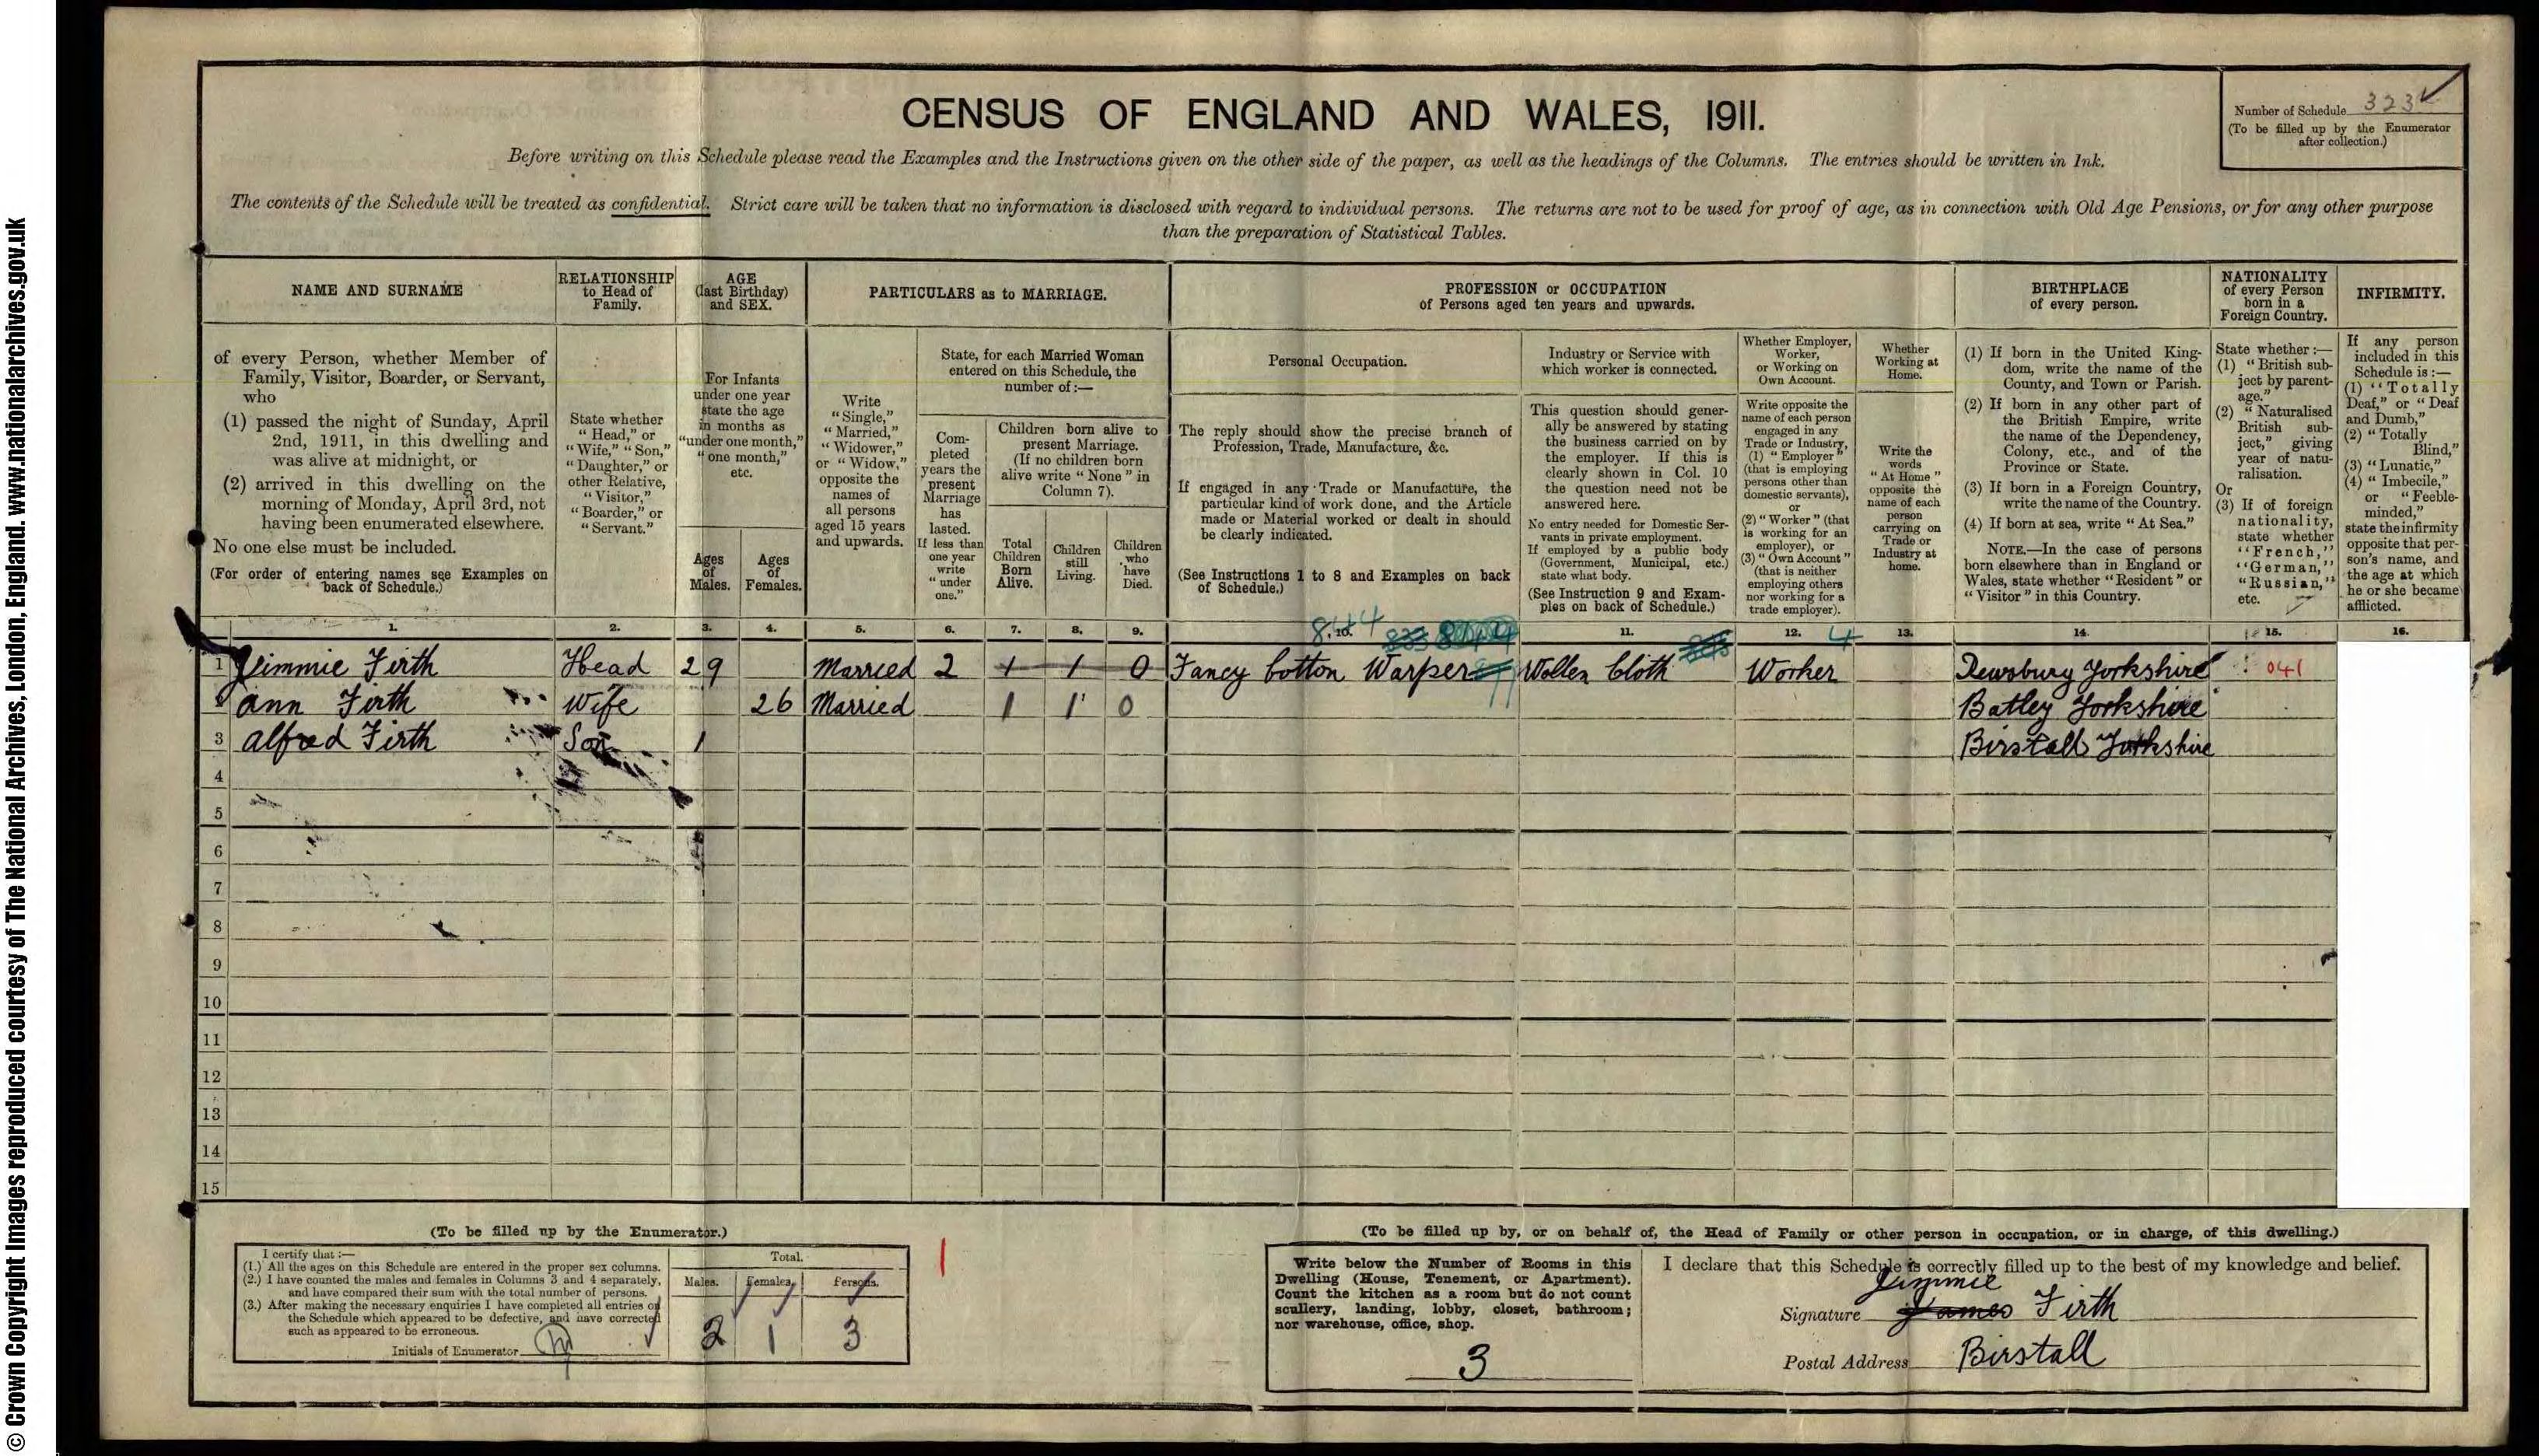 © Crown Copyright Images reproduced courtesy of The National Archives, London, England. www.nationalarchives.gov.uk
CENSUS OF ENGLAND AND WALES, 1911.
Number of Schedule 323
(To be filled up by the Enumerator
after collection.)
Before writing on this Schedule please read the Examples and the Instructions given on the other side of the paper, as well as the headings of the Columns. The entries should be written in Ink.
The contents of the Schedule will be treated as confidential. Strict care will be taken that no information is disclosed with regard to individual persons. The returns are not to be used for proof of age, as in connection with Old Age Pensions, or for any other purpose
than the preparation of Statistical Tables.
NAME AND SURNAME
of every Person, whether Member of
Family, Visitor, Boarder, or Servant,
who
(1) passed the night of Sunday, April
2nd, 1911, in this dwelling and
was alive at midnight, or
(2) arrived in this dwelling on the
morning of Monday, April 3rd, not
having been enumerated elsewhere.
No one else must be included.
(For order of entering names see Examples on
back of Schedule.)
RELATIONSHIP
to Head of
Family.
State whether
"Head," or
"Wife," "Son,"
"Daughter," or
other Relative,
"Visitor,"
"Boarder," or
"Servant."
AGE
(last Birthday)
and SEX.
For Infants
under one year
state the age
in months as
"under one month,"
"one month,"
etc.
Ages
of
Males.
Ages
of
Females.
PARTICULARS as to MARRIAGE.
Write
"Single,"
"Married,"
"Widower,"
or "Widow,"
opposite the
names of
all persons
aged 15 years
and upwards.
State, for each Married Woman
entered on this Schedule, the
number of:—
Com-
pleted
years the
present
Marriage
has
lasted.
If less than
one year
write
"under
one."
Children born alive to
present Marriage.
(If no children born
alive write "None" in
Column 7).
Total
Children
Born
Alive.
Children
still
Living.
Children
who
have
Died.
PROFESSION or OCCUPATION
of Persons aged ten years and upwards.
Personal Occupation.
The reply should show the precise branch of
Profession, Trade, Manufacture, &c.
If engaged in any Trade or Manufacture, the
particular kind of work done, and the Article
made or Material worked or dealt in should
be clearly indicated.
(See Instructions 1 to 8 and Examples on back
of Schedule.)
Industry or Service with
which worker is connected.
This question should gener-
ally be answered by stating
the business carried on by
the employer. If this is
clearly shown in Col. 10
the question need not be
answered here.
No entry needed for Domestic Ser-
vants in private employment.
If employed by a public body
(Government, Municipal, etc.)
state what body.
(See Instruction 9 and Exam-
ples on back of Schedule.)
Whether Employer,
Worker,
or Working on
Own Account.
Write opposite the
name of each person
engaged in any
Trade or Industry,
(1) "Employer"
(that is employing
persons other than
domestic servants),
or
(2) "Worker" (that
is working for an
employer), or
(3) "Own Account"
(that is neither
employing others
nor working for a
trade employer).
Whether
Working at
Home.
Write the
words
"At Home"
opposite the
name of each
person
carrying on
Trade or
Industry at
home.
BIRTHPLACE
of every person.
(1) If born in the United King-
dom, write the name of the
County, and Town or Parish.
(2) If born in any other part of
the British Empire, write
the name of the Dependency,
Colony, etc., and of the
Province or State.
(3) If born in a Foreign Country,
write the name of the Country.
(4) If born at sea, write "At Sea."
NOTE.—In the case of persons
born elsewhere than in England or
Wales, state whether "Resident" or
"Visitor" in this Country.
NATIONALITY
of every Person
born in a
Foreign Country.
State whether:—
(1) "British sub-
ject by parent-
age."
(2) "Naturalised
British sub-
ject," giving
year of natu-
ralisation.
Or
(3) If of foreign
nationality,
state whether
"French,"
"German,"
"Russian,"
etc.
INFIRMITY.
If any person
included in this
Schedule is:—
(1) "Totally
Deaf," or "Deaf
and Dumb,"
(2) "Totally
Blind,"
(3) "Lunatic,"
(4) "Imbecile,"
or "Feeble-
minded,"
state the infirmity
opposite that per-
son's name, and
the age at which
he or she became
afflicted.
1. 2. 3. 4. 5. 6. 7. 8. 9. 10. 11. 12. 4 13. 14. 15. 16.
1 Jimmie Firth Head 29 Married 2 1 1 0 Fancy Cotton Warper Wollen Cloth Worker Dewsbury Yorkshire 041
2 ann Firth Wife 26 Married 1 1 0 Batley Yorkshire
3 alfred Firth Son 1 Birstall Yorkshire
4
5
6
7
8
9
10
11
12
13
14
15
(To be filled up by the Enumerator.)
I certify that:—
(1.) All the ages on this Schedule are entered in the proper sex columns.
(2.) I have counted the males and females in Columns 3 and 4 separately,
and have compared their sum with the total number of persons.
(3.) After making the necessary enquiries I have completed all entries on
the Schedule which appeared to be defective, and have corrected
such as appeared to be erroneous.
Initials of Enumerator
Total.
Males. Females. Persons.
2 1 3
(To be filled up by, or on behalf of, the Head of Family or other person in occupation, or in charge, of this dwelling.)
Write below the Number of Rooms in this
Dwelling (House, Tenement, or Apartment).
Count the kitchen as a room but do not count
scullery, landing, lobby, closet, bathroom;
nor warehouse, office, shop.
3
I declare that this Schedule is correctly filled up to the best of my knowledge and belief.
Jimmie
Signature James Firth
Postal Address Birstall